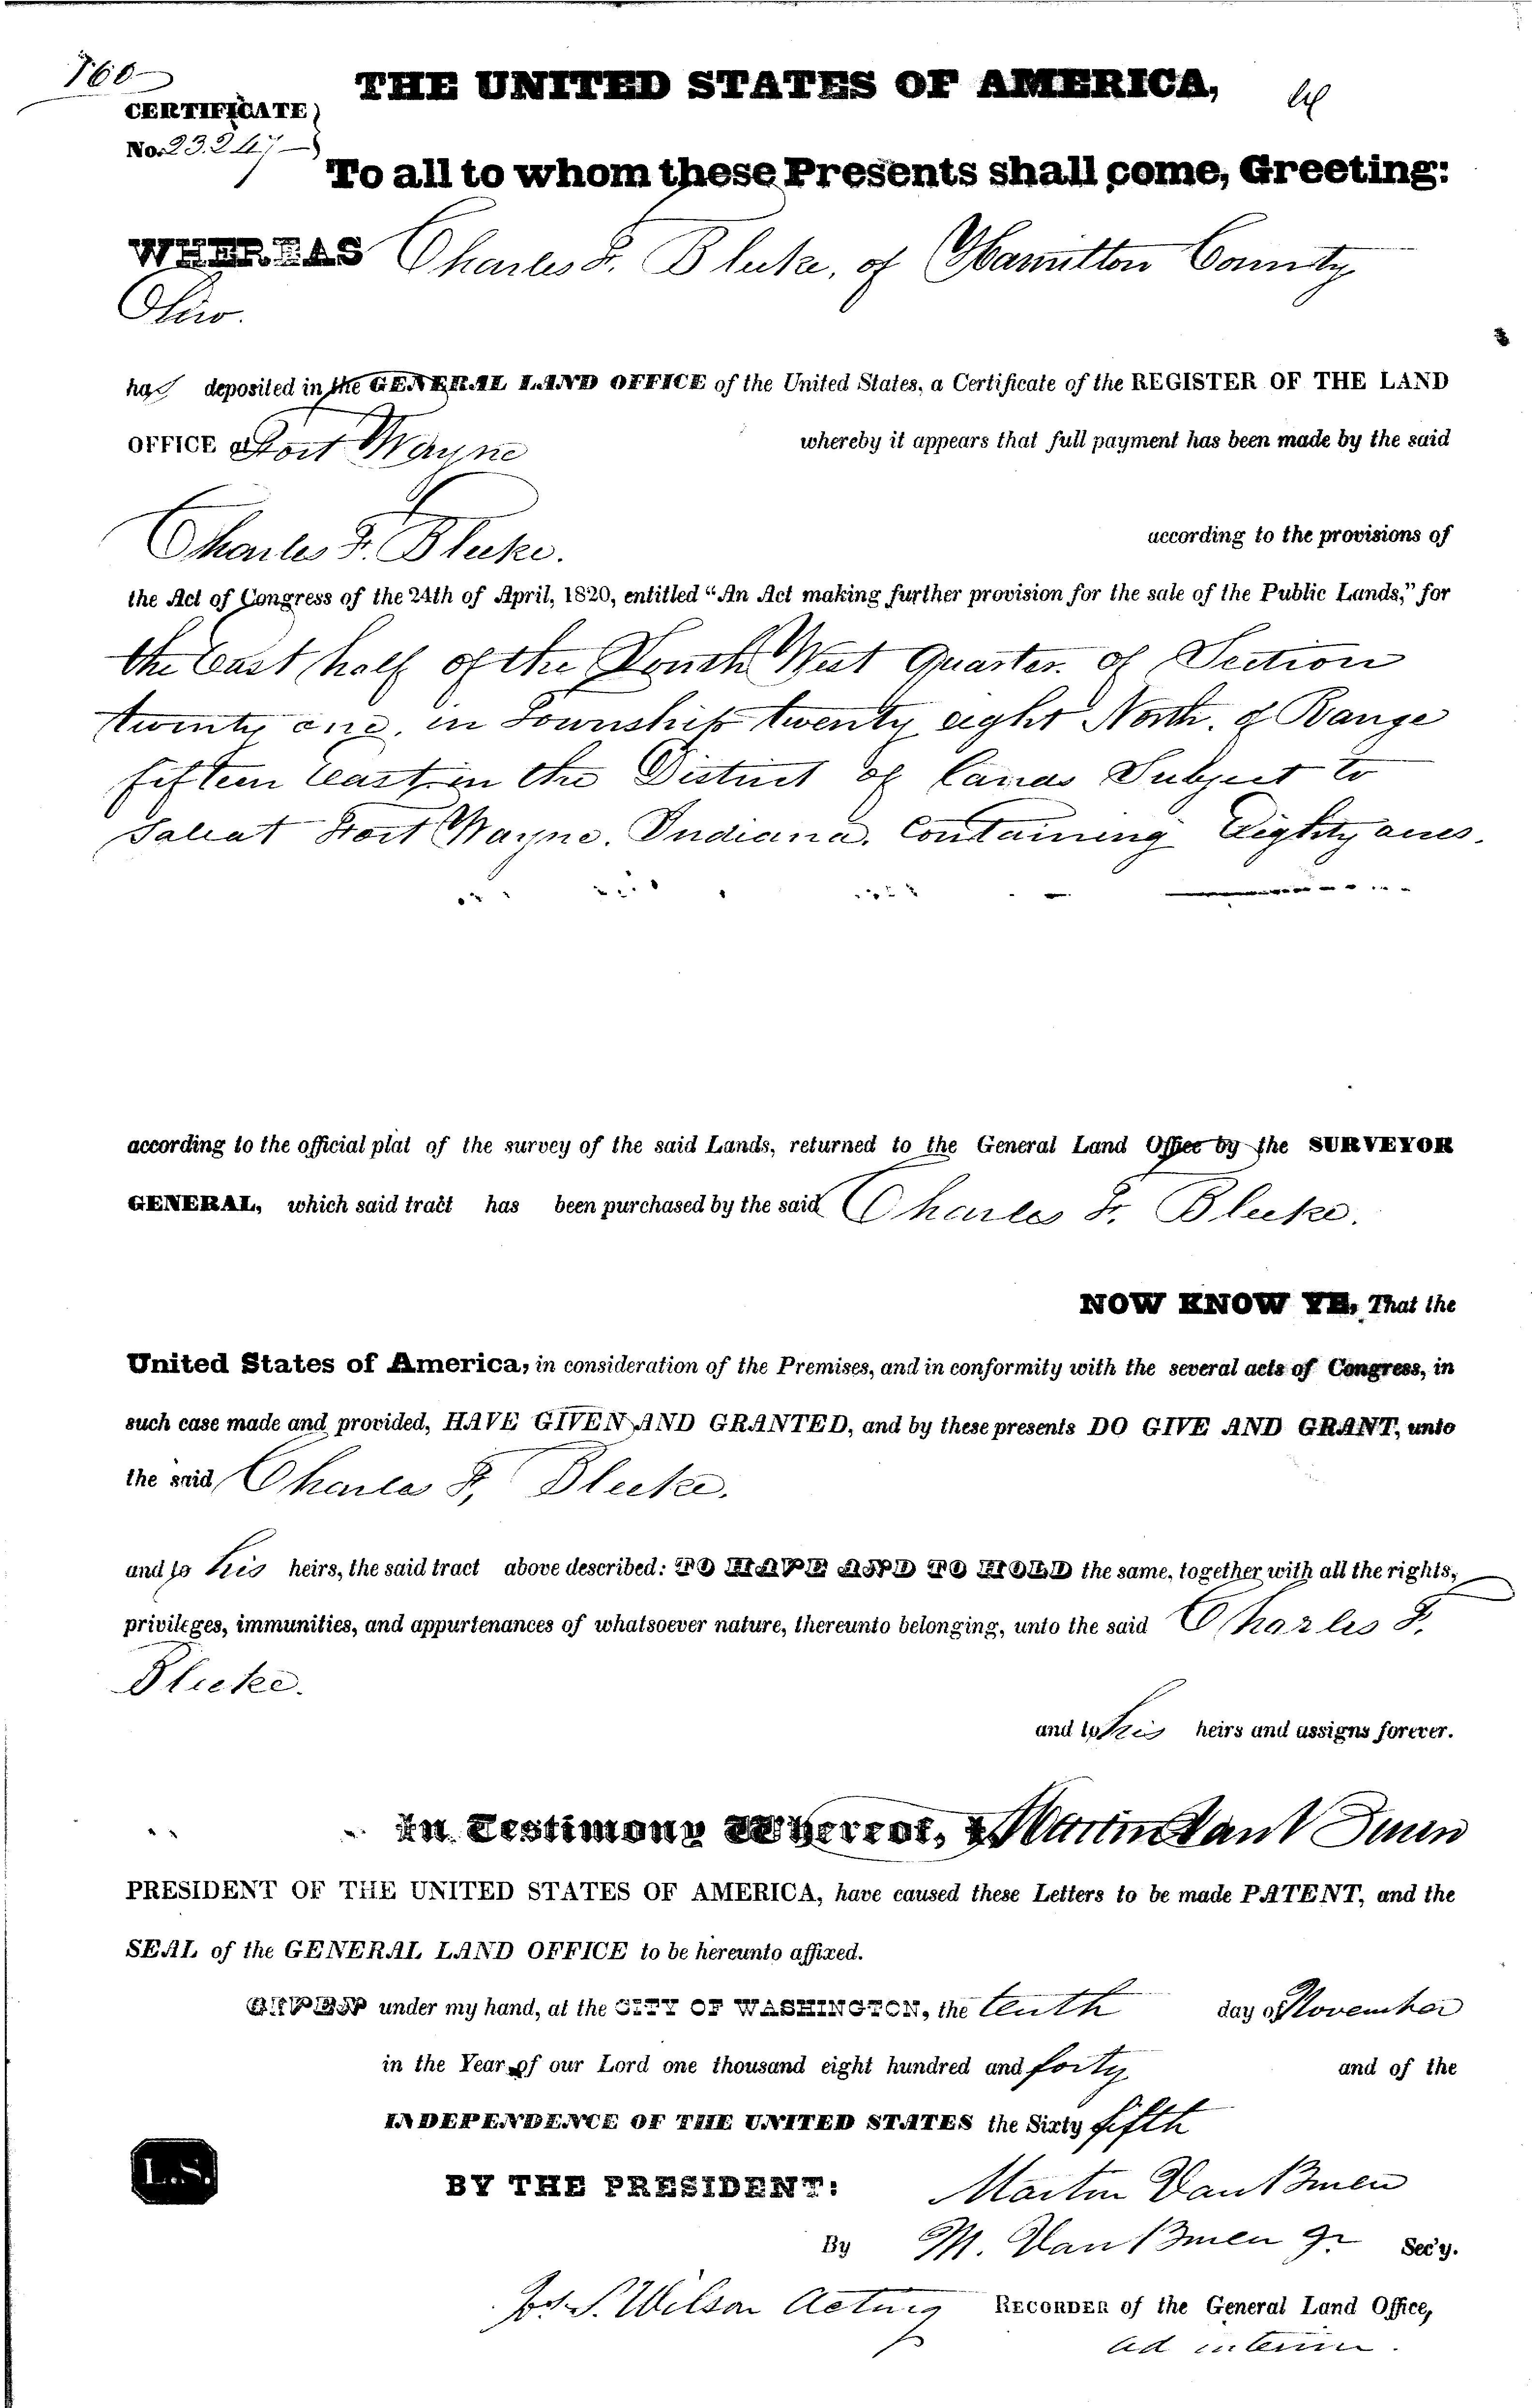 760
THE UNITED STATES OF AMERICA,
CERTIFICATE
No. 23.247
To all to whom these Presents shall come, Greeting:
WHEREAS Charles F. Bleeke, of Hamilton County
Ohio.
has deposited in the GENERAL LAND OFFICE of the United States, a Certificate of the REGISTER OF THE LAND
OFFICE at Fort Wayne whereby it appears that full payment has been made by the said
Charles F. Bleeke. according to the provisions of
the Act of Congress of the 24th of April, 1820, entitled “An Act making further provision for the sale of the Public Lands,” for
the East half of the South West Quarter of Section
twenty one, in Township twenty eight North, of Range
fifteen East, in the District of Lands Subject to
Sale at Fort Wayne, Indiana, Containing Eighty acres.
according to the official plat of the survey of the said Lands, returned to the General Land Office by the SURVEYOR
GENERAL, which said tract has been purchased by the said Charles F. Bleeke.
NOW KNOW YE, That the
United States of America, in consideration of the Premises, and in conformity with the several acts of Congress, in
such case made and provided, HAVE GIVEN AND GRANTED, and by these presents DO GIVE AND GRANT, unto
the said Charles F. Bleeke.
and to his heirs, the said tract above described: TO HAVE AND TO HOLD the same, together with all the rights,
privileges, immunities, and appurtenances of whatsoever nature, thereunto belonging, unto the said Charles F.
Bleeke.
and to his heirs and assigns forever.
In Testimony Whereof, I, Martin Van Buren
PRESIDENT OF THE UNITED STATES OF AMERICA, have caused these Letters to be made PATENT, and the
SEAL of the GENERAL LAND OFFICE to be hereunto affixed.
GIVEN under my hand, at the CITY OF WASHINGTON, the tenth day of November
in the Year of our Lord one thousand eight hundred and forty and of the
INDEPENDENCE OF THE UNITED STATES the Sixty fifth
L.S.
BY THE PRESIDENT: Martin Van Buren
By M. Van Buren Jr. Sec'y.
Jos. S. Wilson Acting RECORDER of the General Land Office,
ad interim.